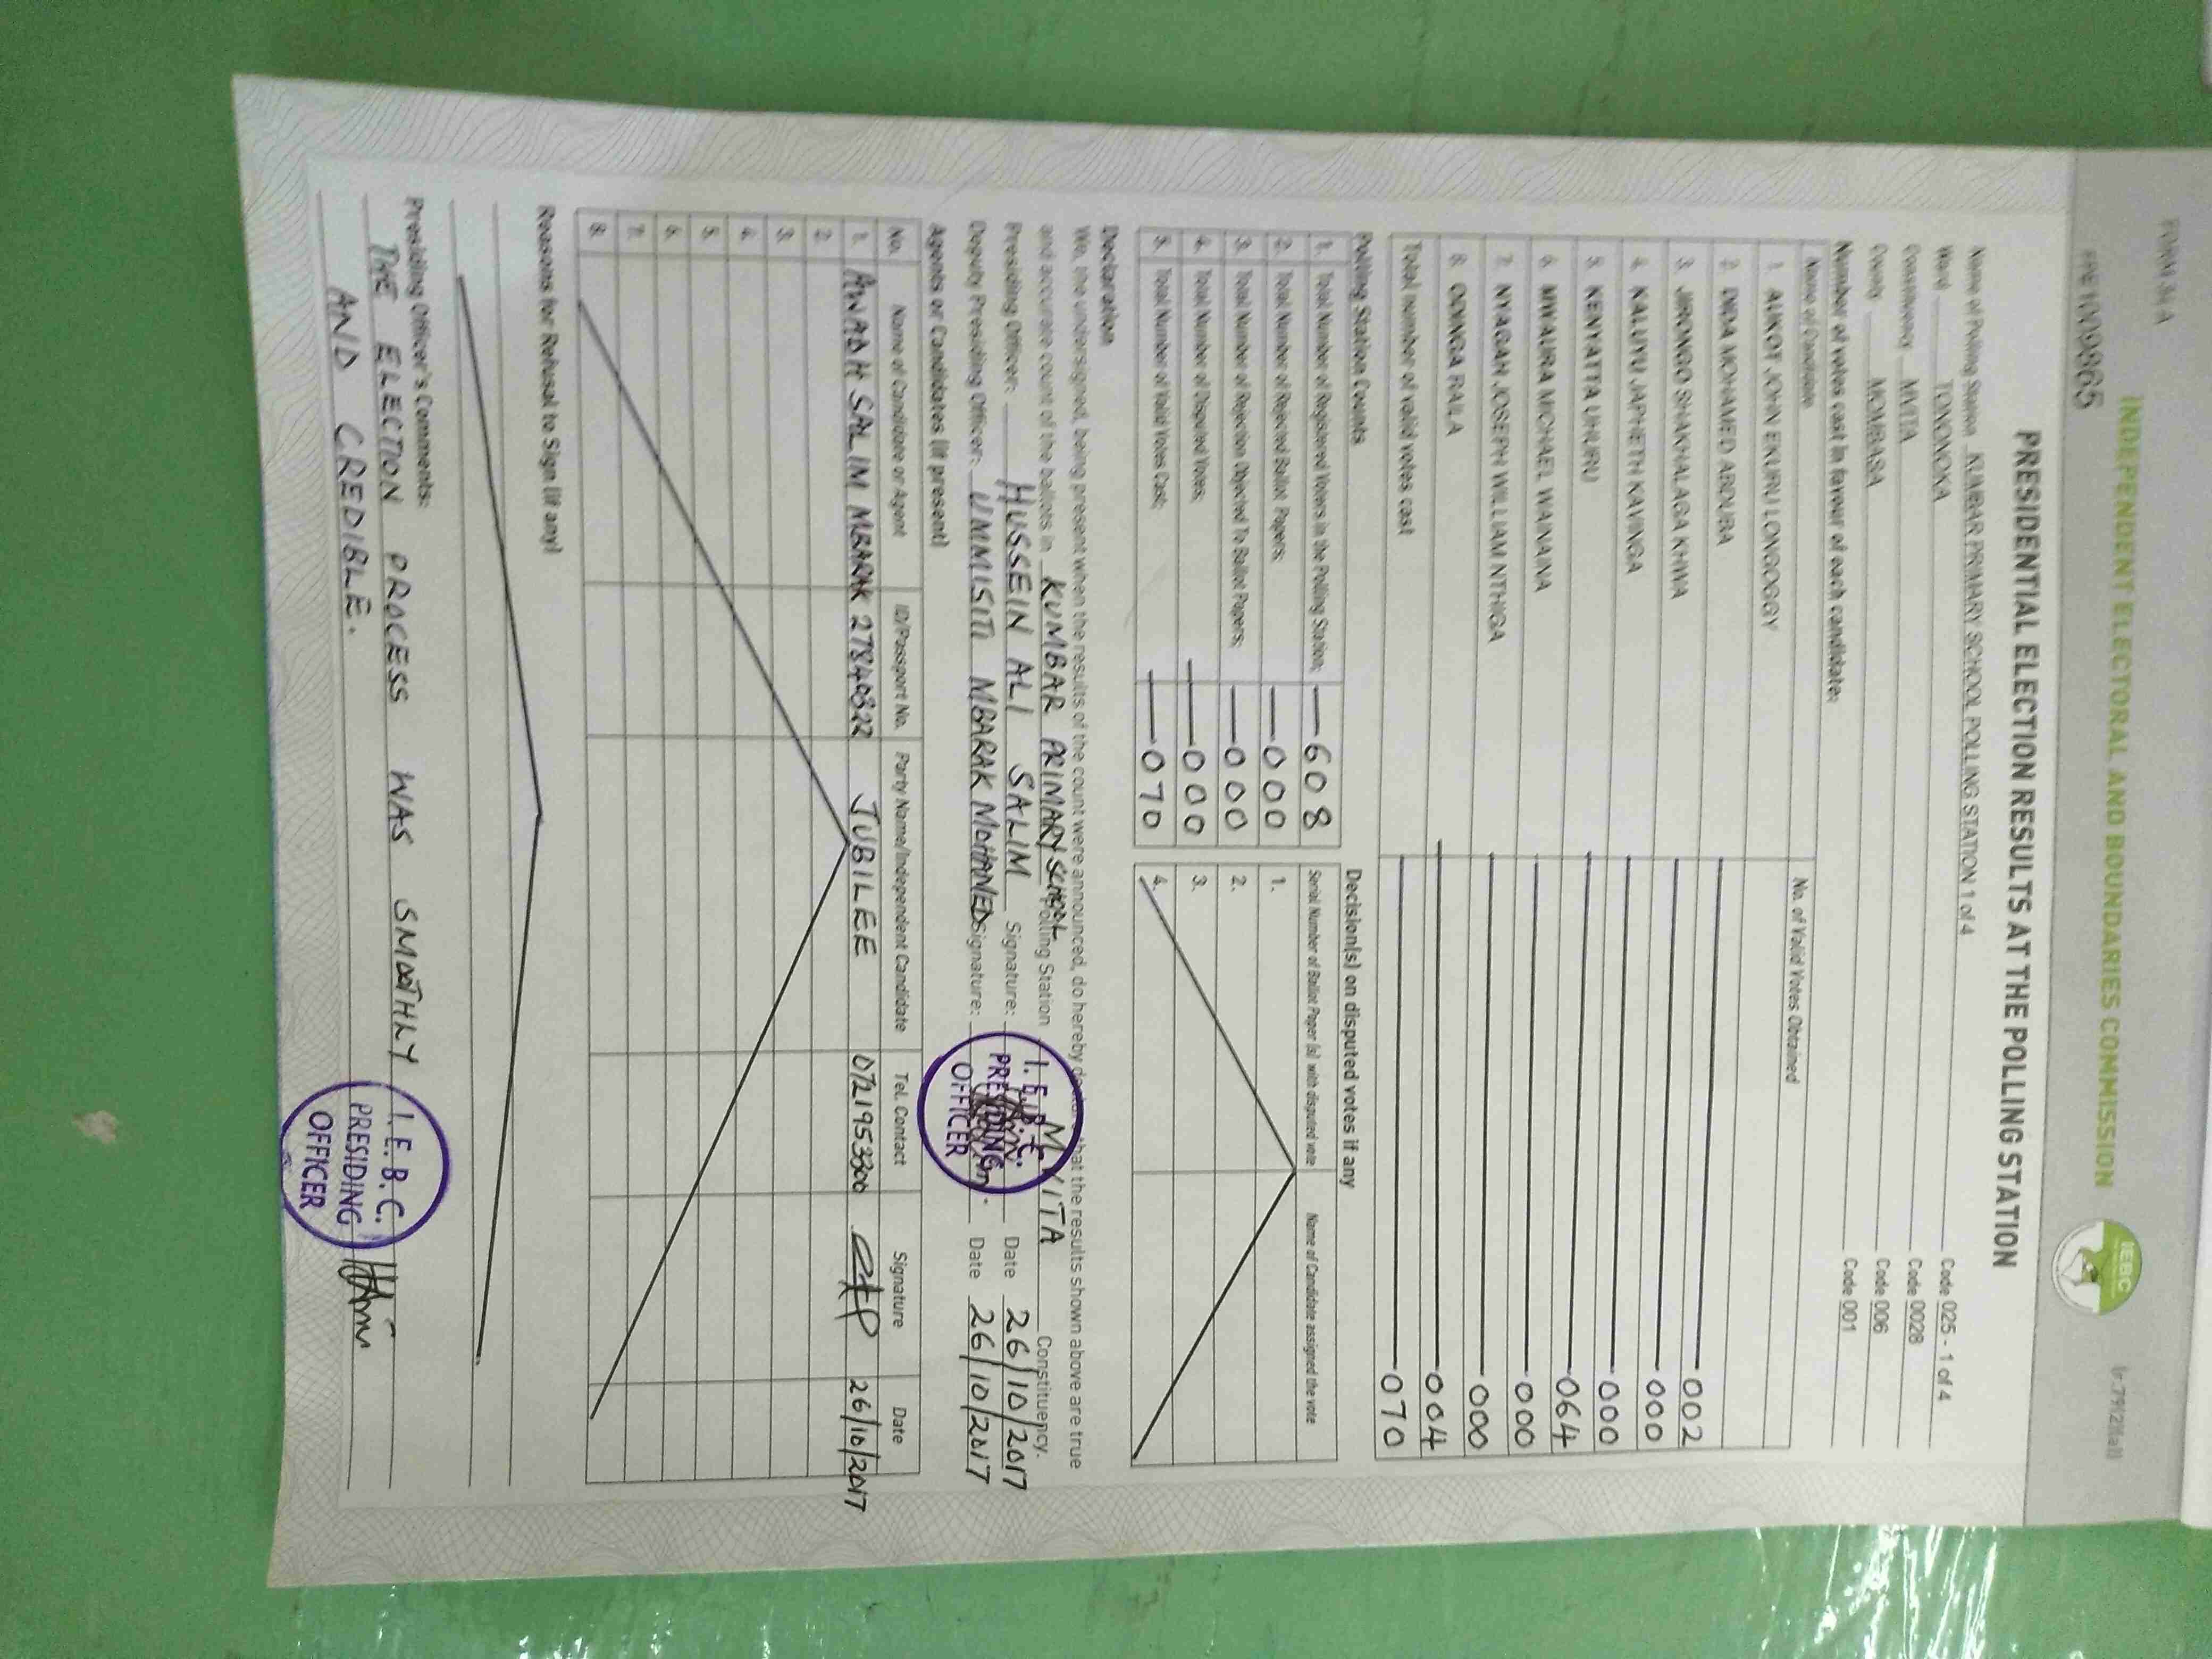 FORM 34 A
INDEPENDENT ELECTORAL AND BOUNDARIES COMMISSION
IEBC
PRESIDENTIAL ELECTION RESULTS AT THE POLLING STATION
Name of Polling Station KUMBAR PRIMARY SCHOOL POLLING STATION 1 of 4 Code 025 - 1 of 4
Ward TONONOKA Code 0028
Constituency MVITA Code 006
County MOMBASA Code 001
Number of votes cast in favour of each candidate:
Name of Candidate No. of Valid Votes Obtained
1. AUKOT JOHN EKURU LONGOGGY
2. DIDA MOHAMED ABDUBA 002
3. JIRONGO SHAKHALAGA KHWA 000
4. KALUYU JAPHETH KAVINGA 000
5. KENYATTA UHURU 064
6. MWAURA MICHAEL WAINAINA 000
7. NYAGAH JOSEPH WILLIAM NTHIGA 000
8. ODINGA RAILA 004
Total number of valid votes cast 070
Polling Station Counts
1. Total Number of Registered Voters in the Polling Station; 608
2. Total Number of Rejected Ballot Papers; 000
3. Total Number of Rejection Objected To Ballot Papers; 000
4. Total Number of Disputed Votes; 000
5. Total Number of Valid Votes Cast; 070
Decision(s) on disputed votes if any
Serial Number of Ballot Paper (s) with disputed vote Name of Candidate assigned the vote
1.
2.
3.
4.
Declaration
We, the undersigned, being present when the results of the count were announced, do hereby that the results shown above are true
and accurate count of the ballots in KUMBAR PRIMARY SCHOOL Polling Station MVITA Constituency.
Presiding Officer: HUSSEIN ALI SALIM Signature: Date 26/10/2017
Deputy Presiding Officer: UMMISITI MBARAK MOHAMED Signature: Date 26/10/2017
I.E.B.C. PRESIDING OFFICER
Agents or Candidates (if present)
No. Name of Candidate or Agent ID/Passport No. Party Name/Independent Candidate Tel. Contact Signature Date
1. AWADH SALIM MBARAK 27840822 JUBILEE 0721953300 26/10/2017
2.
3.
4.
5.
6.
7.
8.
Reasons for Refusal to Sign (if any)
Presiding Officer's Comments:
THE ELECTION PROCESS WAS SMOOTHLY
AND CREDIBLE.
I.E.B.C. PRESIDING OFFICER